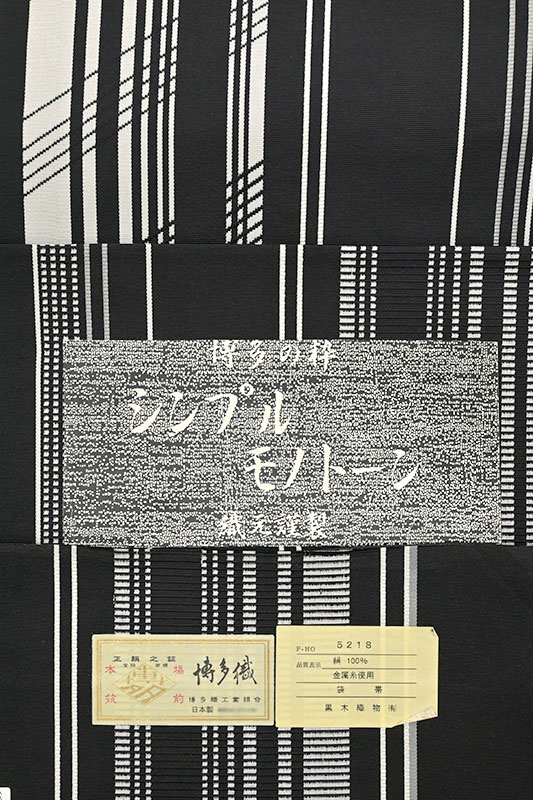 博多の粋
シンプル
モノトーン
織元謹製
正絹之証
本場
筑前
博多織
博多織工業組合
日本製
F-HO 5218
品質表示 絹 100%
金属糸使用
袋 帯
黒木織物(有)